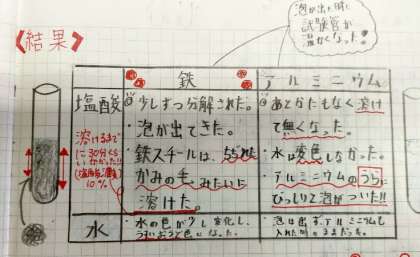 泡が出た時に
試験管が
温かくなった!
【結果】
鉄
アルミニウム
塩酸
溶けるまで
に30分くら
いかかった!!
10%
少しずつ分解された。
・泡が出てきた。
・鉄スチールは、ちぢれた
かみの毛みたいに
溶けた。
あとかたもなく溶け
て無くなった。
・水は変色しなかった。
・アルミニウムのうらに
びっしりと泡がついた!!
水
・水の色が少し変化し、
うすいおうど色になった。
・泡は出ず、アルミニウムも
入れた時のままだった。